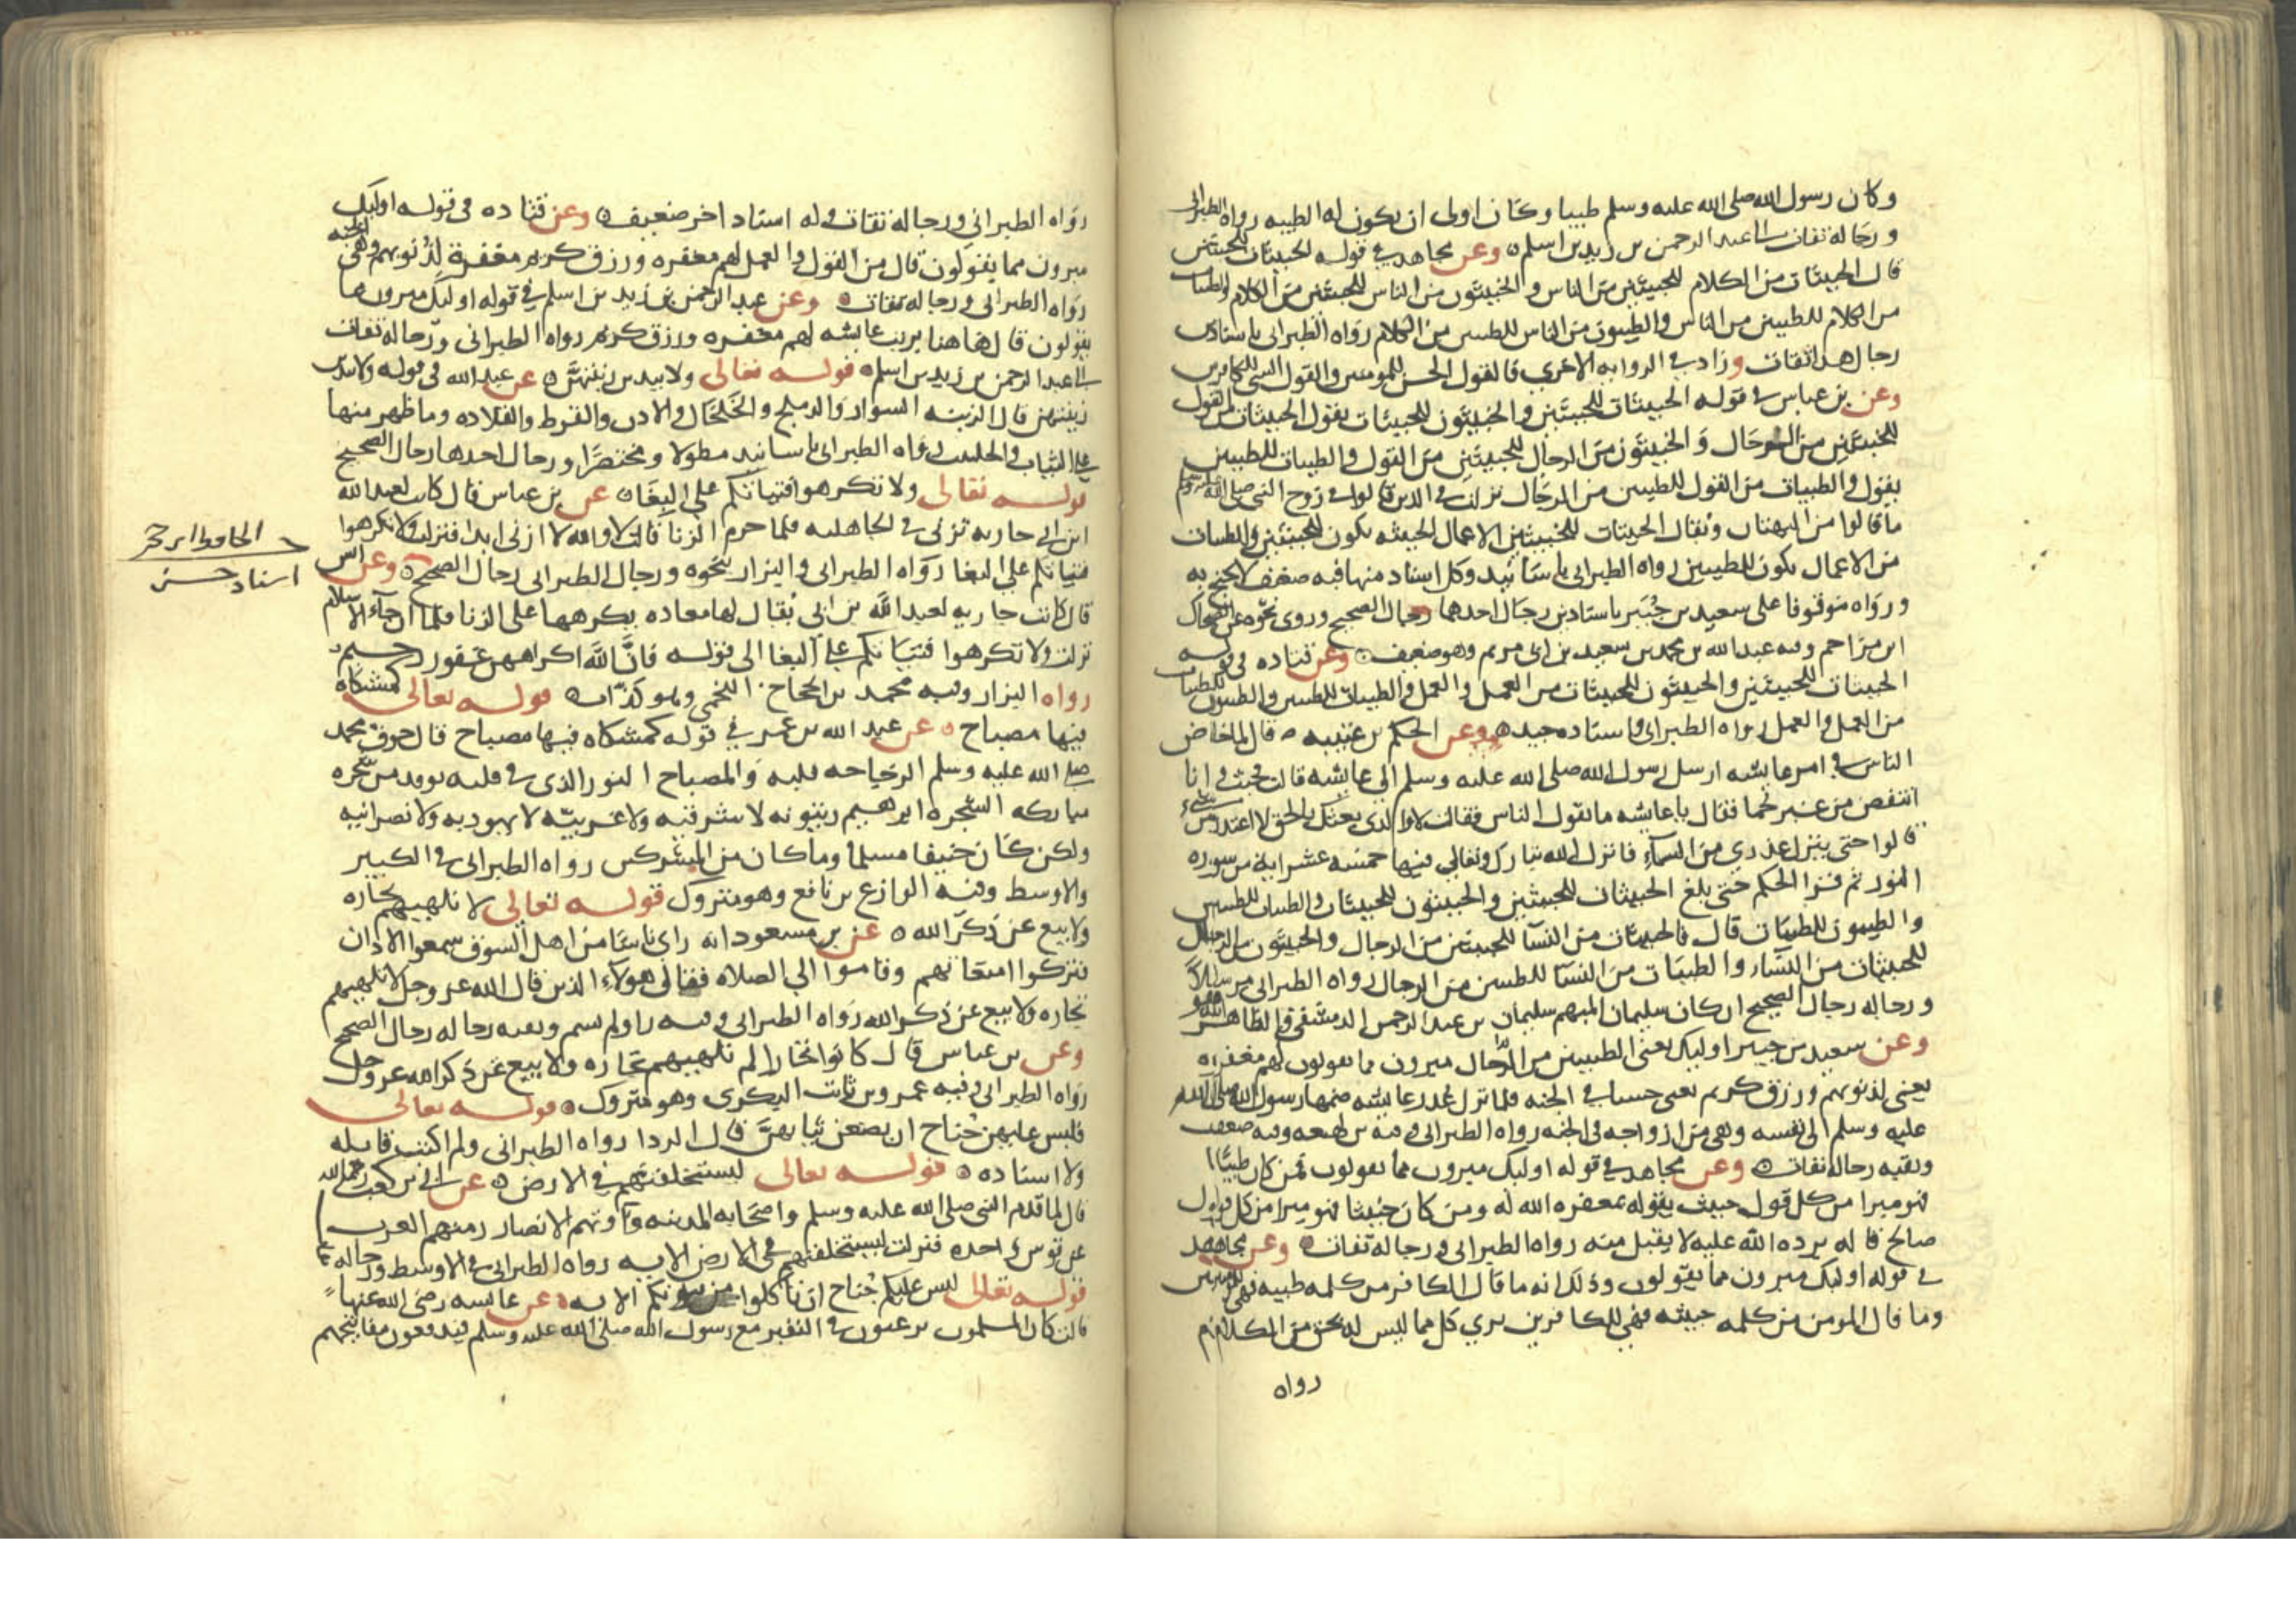 وكان رسول الله صلى الله عليه وسلم طيبا وكان اولى ان يكون له الطيبه رواه الطبراني
ورجاله ثقات الى عبد الرحمن بن زيد بن اسلم ٥ وعن مجاهد في قوله الخبيثات للخبيثين
قال الخبيثات من الكلام للخبيثين من الناس والخبيثون من الناس للخبيثين من الكلام والطيبات
من الكلام للطيبين من الناس والطيبون من الناس للطيبين من الكلام رواه الطبراني باسنادين
رجال هذا ثقات وزاد في الروايه الاخرى فالقول الحسن للمومنين والقول السيئ للكافرين
وعن بن عباس في قوله الخبيثات للخبيثين والخبيثون للخبيثات يقول الخبيثات من القول
للخبيثين من الرجال والخبيثون من الرجال للخبيثين من القول والطيبات للطيبين
يقول والطيبات من القول للطيبين من الرجال نزلت في الذين قالوا في زوج النبي صلى الله عليه وسلم
ما قالوا من البهتان ويقال الخبيثات للخبيثين الاعمال الخبيثه تكون للخبيثين والطيبات
من الاعمال تكون للطيبين رواه الطبراني باسانيد وكل اسناد منها فيه ضعف لا يحتج به
ورواه موقوفا على سعيد بن جبير باسنادين رجال احدهما رجال الصحيح وروى نحوه عن الضحاك
ابن مزاحم وفيه عبد الله بن محمد بن سعيد بن ابي مريم وهو ضعيف ٥ وعن قتاده في قوله
الخبيثات للخبيثين والخبيثون للخبيثات من العمل والعمل والطيبات للطيبين والطيبون للطيبات
من العمل والعمل رواه الطبراني واسناده جيد ٥ وعن الحكم بن عتيبه ٥ قال لما خاض
الناس في امر عايشه ارسل رسول الله صلى الله عليه وسلم الى عايشه قالت فجئت وانا
انتفض من غير حما فقال يا عايشه ما يقول الناس فقالت لا والذي بعثك بالحق لا اعتذر من شيء
قالوا حتى ينزل عذري من السماء فانزل الله تبارك وتعالى فيها خمسه عشر ايه من سوره
النور ثم قرا الحكم حتى بلغ الخبيثات للخبيثين والخبيثون للخبيثات والطيبات للطيبين
والطيبون للطيبات قال فالخبيثات من النسا للخبيثين من الرجال والخبيثون من الرجال
للخبيثات من النساء والطيبات من النسا للطيبين من الرجال رواه الطبراني مرسلا
ورجاله رجال الصحيح ان كان سليمان المبهم سليمان بن عبد الرحمن الدمشقي والظاهر انه هو
وعن سعيد بن جبير اوليك يعني الطيبين من الرجال مبرون مما يقولون لهم مغفره
يعني لذنوبهم ورزق كريم يعني حسنا في الجنه فلما نزل عذر عايشه ضمها رسول الله صلى الله
عليه وسلم الى نفسه وهي من ازواجه في الجنه رواه الطبراني وفيه بن لهيعه وفيه ضعف
وبقيه رجاله ثقات ٥ وعن مجاهد في قوله اوليك مبرون مما يقولون فمن كان طيبا
فهو مبرا من كل قول خبيث يقوله يغفره الله له ومن كان خبيثا فهو مبرا من كل قول
صالح قاله يرده الله عليه لا يقبل منه رواه الطبراني ورجاله ثقات ٥ وعن مجاهد
في قوله اوليك مبرون مما يقولون وذلك انه ما قال الكافر من كلمه طيبه فهي للمومنين
وما قال المومن من كلمه خبيثه فهي للكافرين بري كل مما ليس له بحق من الكلام
رواه
رواه الطبراني ورجاله ثقات وله اسناد اخر ضعيف ٥ وعن قتاده في قوله اوليك
مبرون مما يقولون قال من القول والعمل لهم مغفره ورزق كريم مغفرة لذنوبهم وهي الجنه
رواه الطبراني ورجاله ثقات ٥ وعن عبد الرحمن بن زيد بن اسلم في قوله اوليك مبرون مما
يقولون قال ها هنا بريت عايشه لهم مغفره ورزق كريم رواه الطبراني ورجاله ثقات
الى عبد الرحمن بن زيد بن اسلم ٥ قوله تعالى ولا يبدين زينتهن ٥ عن عبد الله في قوله ولا يبدين
زينتهن قال الزينه السوار والدملج والخلخال والاذن والقرط والقلاده وما ظهر منها
على الثياب والجلباب رواه الطبراني باسانيد مطولا ومختصرا ورجال احدها رجال الصحيح
قوله تعالى ولا تكرهوا فتياتكم على البغا ٥ عن بن عباس قال كانت لعبد الله
ابن ابي جاريه تزني في الجاهليه فلما حرم الزنا قالت لا والله لا ازني ابدا فنزلت ولا تكرهوا
فتياتكم على البغا رواه الطبراني والبزار بنحوه ورجال الطبراني رجال الصحيح ٥ وعن انس
قال كانت جاريه لعبد الله بن ابي يقال لها معاده يكرهها على الزنا فلما ان جاء الاسلام
نزلت ولا تكرهوا فتياتكم على البغا الى قوله فان الله اكراههن غفور رحيم
رواه البزار وفيه محمد بن الحجاج اللخمي وهو كذاب ٥ قوله تعالى كمشكاه
فيها مصباح ٥ عن عبد الله بن عمر في قوله كمشكاه فيها مصباح قال جوف محمد
صلى الله عليه وسلم الزجاجه قلبه والمصباح النور الذي في قلبه توقد من شجره
مباركه الشجره ابرهيم زيتونه لا شرقيه ولا غربيه لا يهوديه ولا نصرانيه
ولكن كان حنيفا مسلما وما كان من المشركين رواه الطبراني في الكبير
والاوسط وفيه الوازع بن نافع وهو متروك قوله تعالى لا تلهيهم تجاره
ولا بيع عن ذكر الله ٥ عن بن مسعود انه راى ناسا من اهل السوق سمعوا الاذان
فتركوا امتعاتهم وقاموا الى الصلاه فقال هولاء الذين قال الله عز وجل لا تلهيهم
تجاره ولا بيع عن ذكر الله رواه الطبراني وفيه راو لم يسم وبقيه رجاله رجال الصحيح
وعن بن عباس قال كانوا تجارا لم تلهيهم تجاره ولا بيع عن ذكر الله عز وجل
رواه الطبراني وفيه عمرو بن ثابت البكري وهو متروك ٥ قوله تعالى
فليس عليهن جناح ان يضعن ثيابهن قال الردا رواه الطبراني ولم اكتب قايله
ولا اسناده ٥ قوله تعالى ليستخلفنهم في الارض ٥ عن ابي بن كعب رحمه الله
قال لما قدم النبي صلى الله عليه وسلم واصحابه المدينه وآوتهم الانصار رمتهم العرب
عن قوس واحده فنزلت ليستخلفنهم في الارض الايه رواه الطبراني في الاوسط ورجاله ثقات
قوله تعالى ليس عليكم جناح ان تاكلوا من بيوتكم الايه ٥ عن عايشه رضي الله عنها
قالت كان المسلمون يرغبون في النفير مع رسول الله صلى الله عليه وسلم فيدفعون مفاتيحهم
الحافظ ابن حجر
اسناد حسن